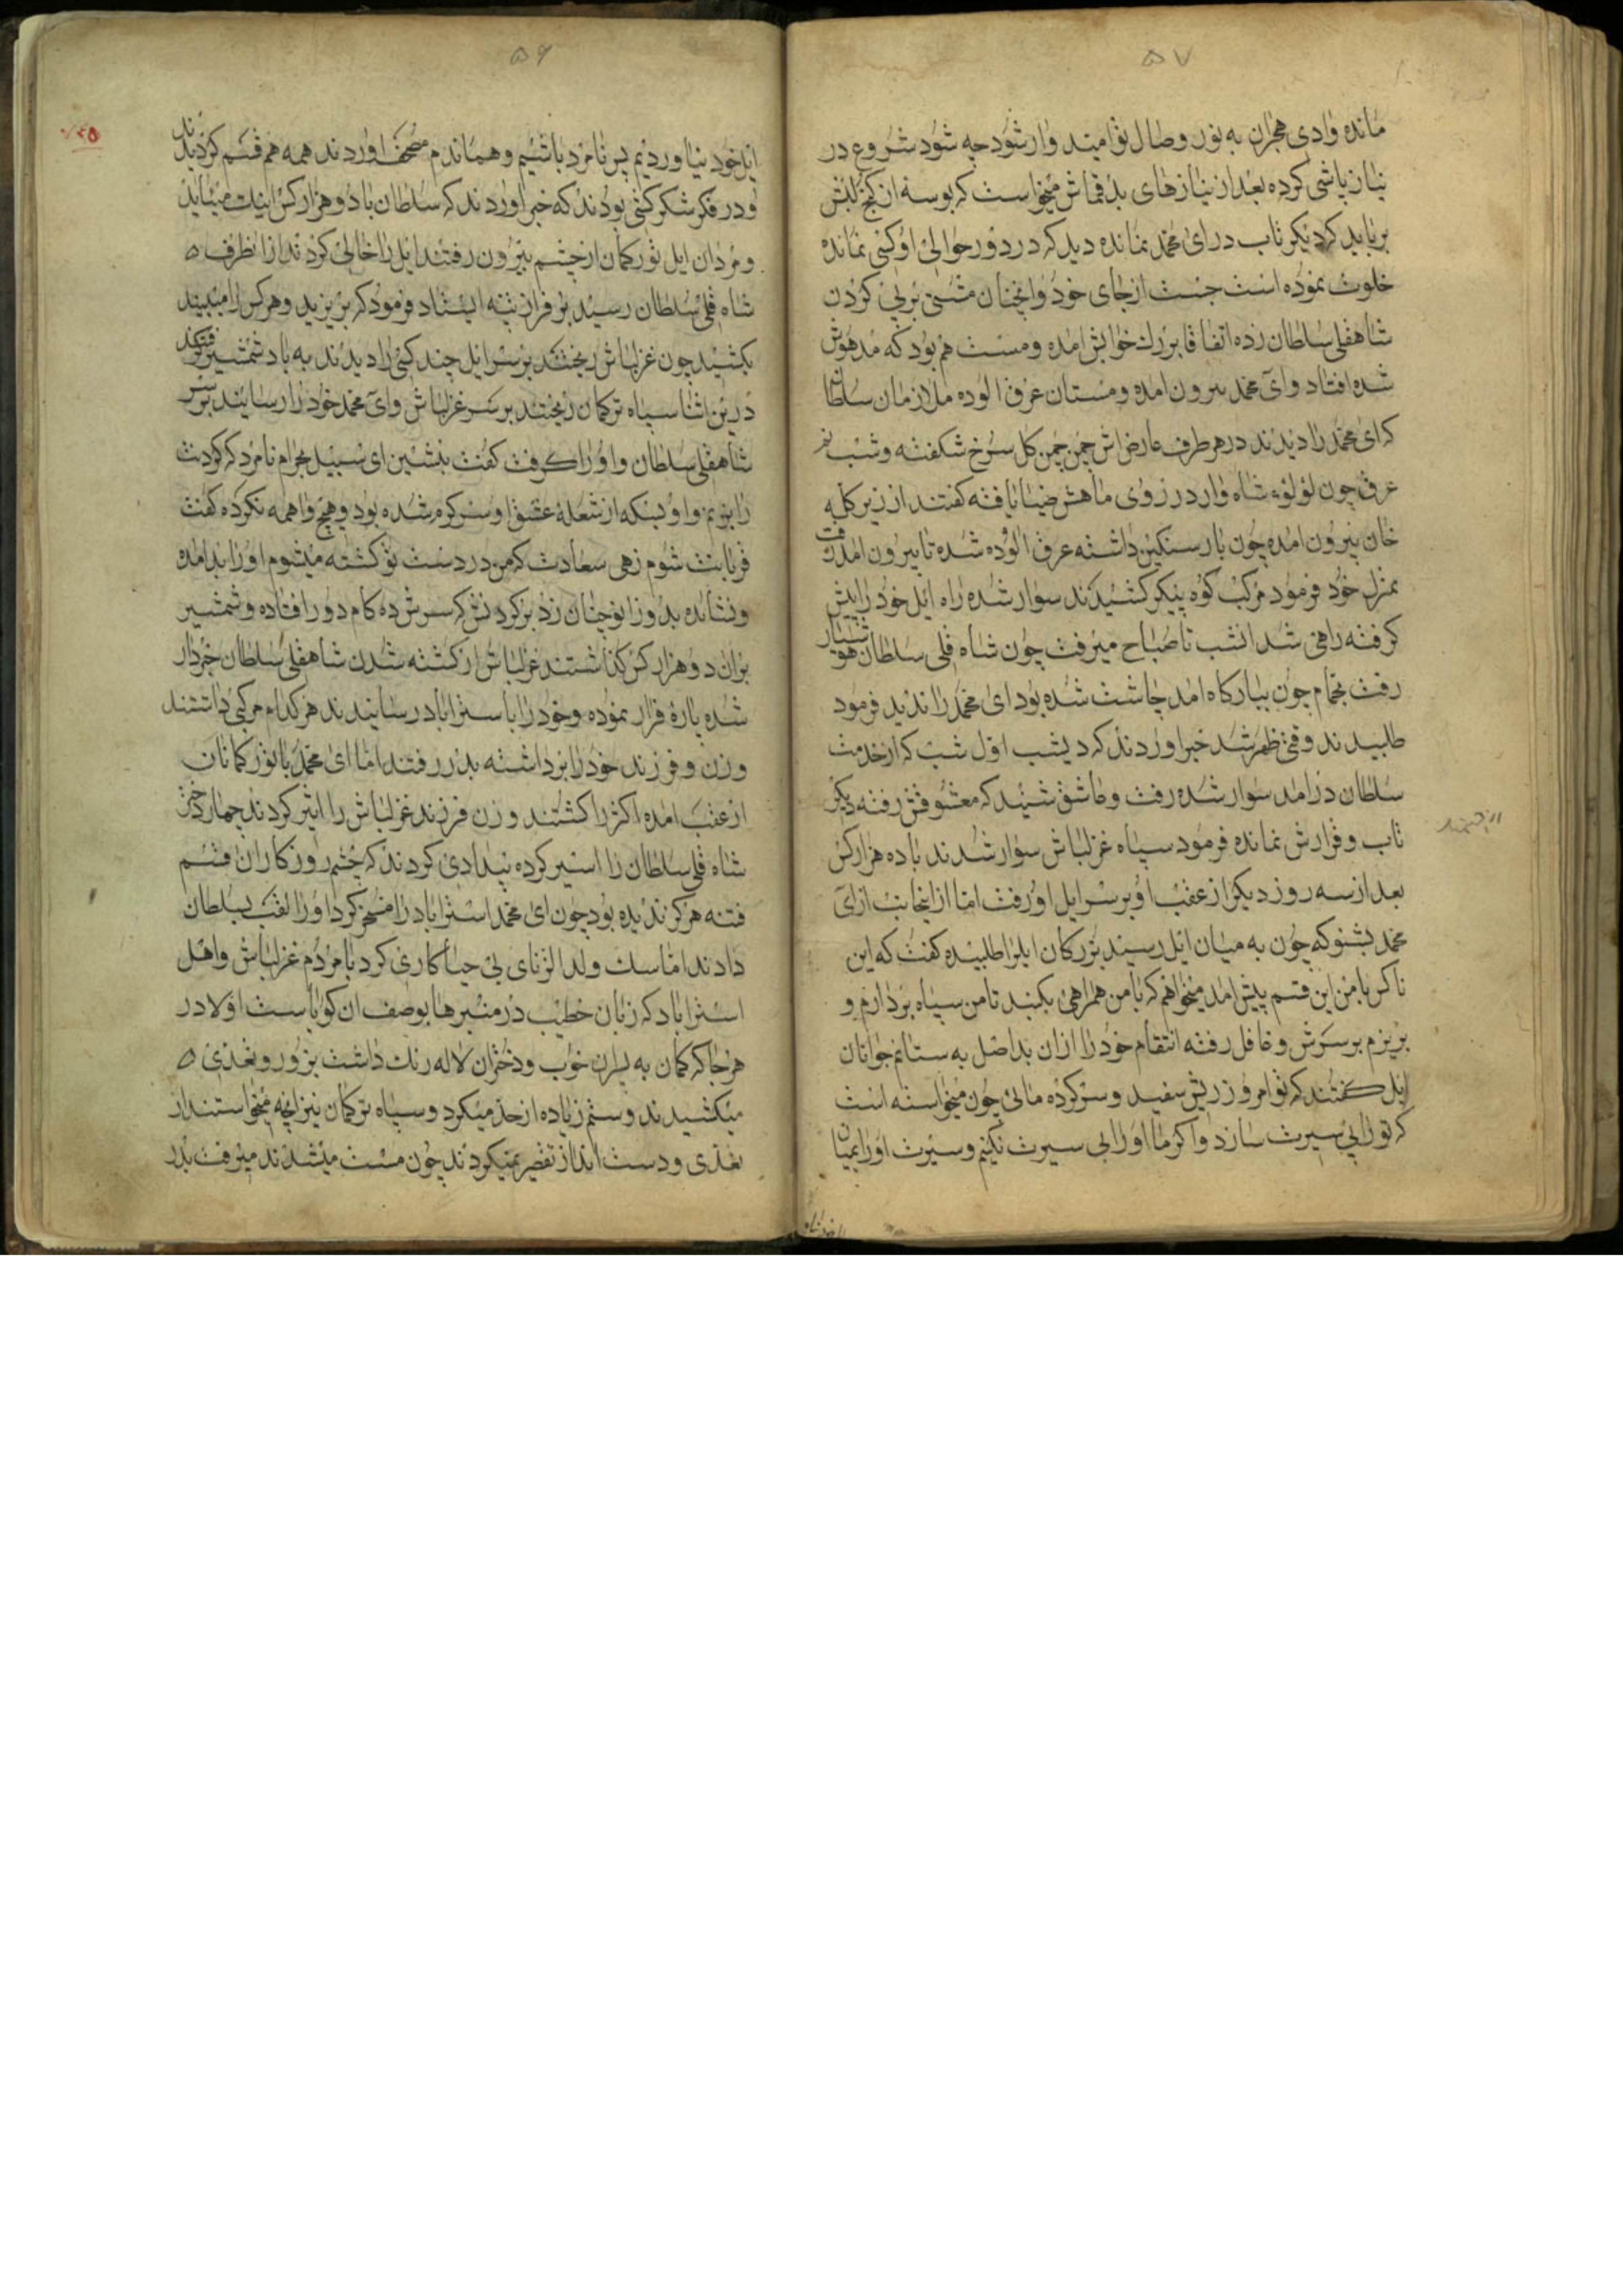 ۵۷
مانده وادی هجران به نور وصال تو امید وار شود چه شود شروع در
نیاز پاشی کرده بعد از نیازهای بد قماش میخواست که بوسه از کنج لبش
برباید که دیگر تاب در ای محمد نمانده دید که در دور حوالی او کسی نمانده
خلوت نموده است جست از جای خود و انچنان مشتی بر بی کردن
شاهقلی سلطان زده اتفاقا بر رک خوابش امده و مست هم بود که مدهوش
شده افتاد و ای محمد بیرون امده و مستان عرق الوده ملازمان سلطان
که ای محمد را دیدند در هر طرف عارض اش چمن چمن کل سرخ شکفته و شب نم
عرق چون لؤلؤء شاه وار در روی ماهش ضیا یافته کفتند از زیر کله
خان بیرون امده چون بار سنکین داشته عرق الوده شده تا بیرون امد رفت
بمنزل خود فرمود مرکب کوه پیکر کشیدند سوار شده راه ایل خود را پیش
کرفته راهی شد انشب تا صباح میرفت چون شاه قلی سلطان هوشیار
رفت بحمام چون ببارکاه امد چاشت شده بود ای محمد را ندید فرمود
طلبیدند وقتی ظهر شد خبر اوردند که دیشب اول شب که از خدمت
سلطان در امد سوار شده رفت و عاشق شنید که معشوقش رفته دیکر
تاب و قرارش نمانده فرمود سپاه غزلباش سوار شدند با ده هزار کس
بعد از سه روز دیکر از عقب او بر سر ایل او رفت اما از اینجانب از ای
محمد بشنو که چون به میان ایل رسید بزرکان ایل را طلبیده کفت که این
ناکس با من این قسم پیش امد میخواهم که با من همراهی بکنید تا من سپاه بردارم و
بریزم بر سرش و غافل رفته انتقام خود را از ان بد اصل به ستانم جوانان
ایل کفتند که تو امروز ریش سفید و سرکرده مائی چون میخواسته است
که تو را بی سیرت سازد و اکر ما او را بی سیرت نکنیم و سیرت او را بمیان
۵۶
ایل خود نیاوردیم پس نامرد باشیم و هماندم مصحف اوردند همه هم قسم کردیدند
و در فکر شکر کشی بودند که خبر اوردند که سلطان با دو هزار کس اینک میاید
و مردان ایل تورکمان از چشم بیرون رفتند ایل را خالی کردند از انطرف
شاه قلی سلطان رسید بر فراز پشته ایستاد فرمود که بریزید و هر کس را میبیند
بکشید چون غزلباش ریختند بر سر ایل چند کسی را دیدند به باد شمشیر کرفتند
درین اثنا سپاه ترکمان ریختند بر سر غزلباش و ای محمد خود را رسانید بر سر
شاهقلی سلطان و او را کرفت کفت بنشین ای سبیل بحرام نامرد که کردنت
را بزنم و او بسکه از شعله عشق او سر کرم شده بود و هیچ واهمه نکرده کفت
قربانت شوم زهی سعادت که من در دست تو کشته میشوم او را بد امده
و نشانده بدو زانو چنان زد بر کردنش که سرش ده کام دور افتاده و شمشیر
بران دو هزار کس کذاشتند غزلباش از کشته شدن شاهقلی سلطان خبردار
شده پاره فرار نموده و خود را با سترا باد رسانیدند هر کدام مرکبی داشتند
و زن و فرزند خود را برداشته بدر رفتند اما ای محمد با تورکمانان
از عقب امده اکثر را کشتند و زن فرزند غزلباش را اسیر کردند چهار دختر
شاه قلی سلطان را اسیر کرده بیدادی کردند که چشم روزکار ان قسم
فتنه هرکز ندیده بود چون ای محمد استراباد را مسخر کرد او را لقب بسلطان
دادند اما سک ولد الزنای بی حیا کاری کرد با مردم غزلباش و اهل
استراباد که زبان خطیب در منبرها بوصف ان کویاست اولا در
هر جا که کمان به پسران خوب و دختران لاله رنک داشت بزور و تعدی
میکشیدند و ستم زیاده از حد میکرد و سپاه ترکمان نیز انچه میخواستند از
تعدی و دست انداز تقصیر نمیکردند چون مست میشدند میرفت بدر